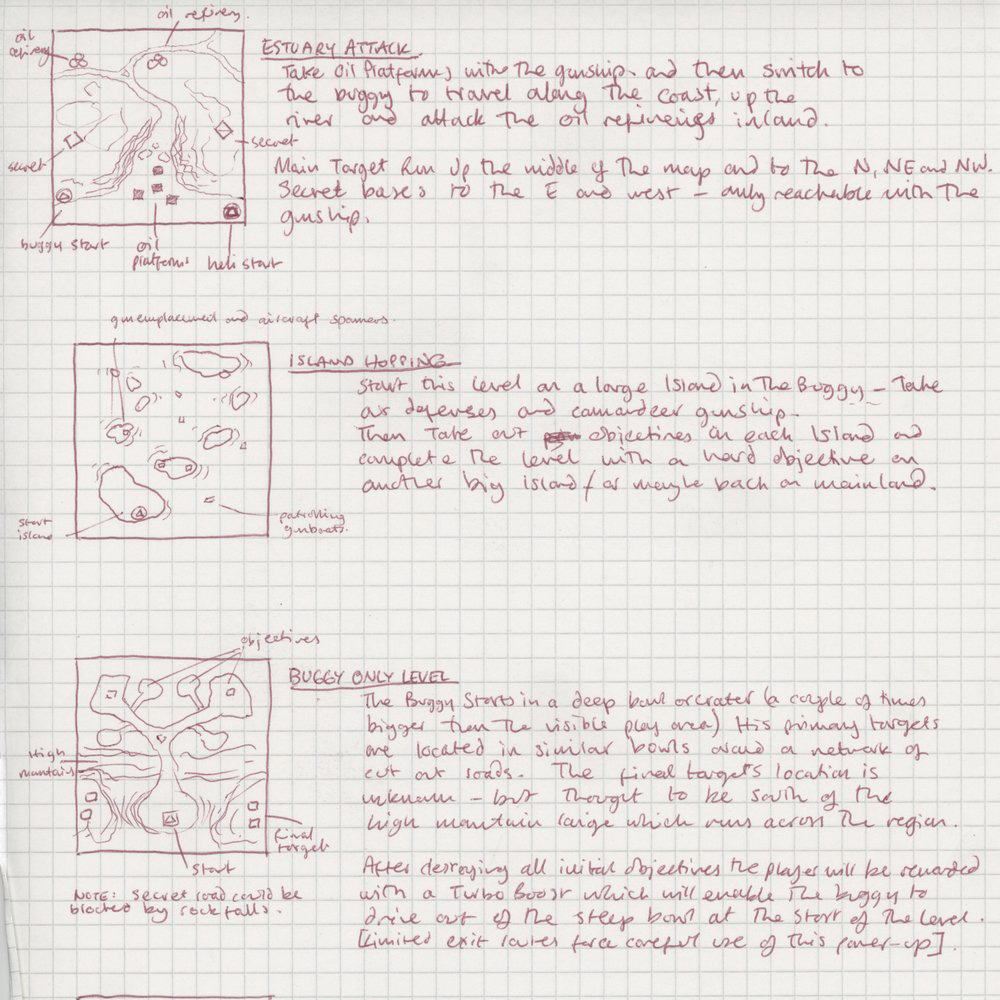 oil refinery.
oil
refinery
ESTUARY ATTACK
Take Oil Platforms with The gunship. and then switch to
the buggy to travel along The Coast, up the
river and attack The oil refineries inland.
secret
secret
Main Target Run Up the middle of The map and to The N, NE and NW.
Secret bases to the E and west - only reachable with The
gunship.
buggy start
oil
platforms
heli start
gunemplacement and aircraft spawners.
ISLAND HOPPING
Start this Level on a large Island in The Buggy - Take
air defenses and comandeer gunship.
Then Take out objectives on each Island and
complete The level with a hard objective on
another big island / or maybe back on mainland.
start
island
patrolling
gunboats.
objectives
BUGGY ONLY LEVEL
The Buggy Starts in a deep bowl or crater (a couple of times
bigger than The visible play area) His primary targets
are located in similar bowls around a network of
cut out roads. The final targets location is
unknown - but Thought to be south of The
high mountain range which runs across The region.
High
mountains
final
target
start
After destroying all initial objectives the player will be rewarded
with a Turbo Boost which will enable The buggy to
drive out of the steep bowl at The Start of The Level.
[Limited exit routes force careful use of this power-up].
NOTE: Secret road could be
blocked by rock falls.